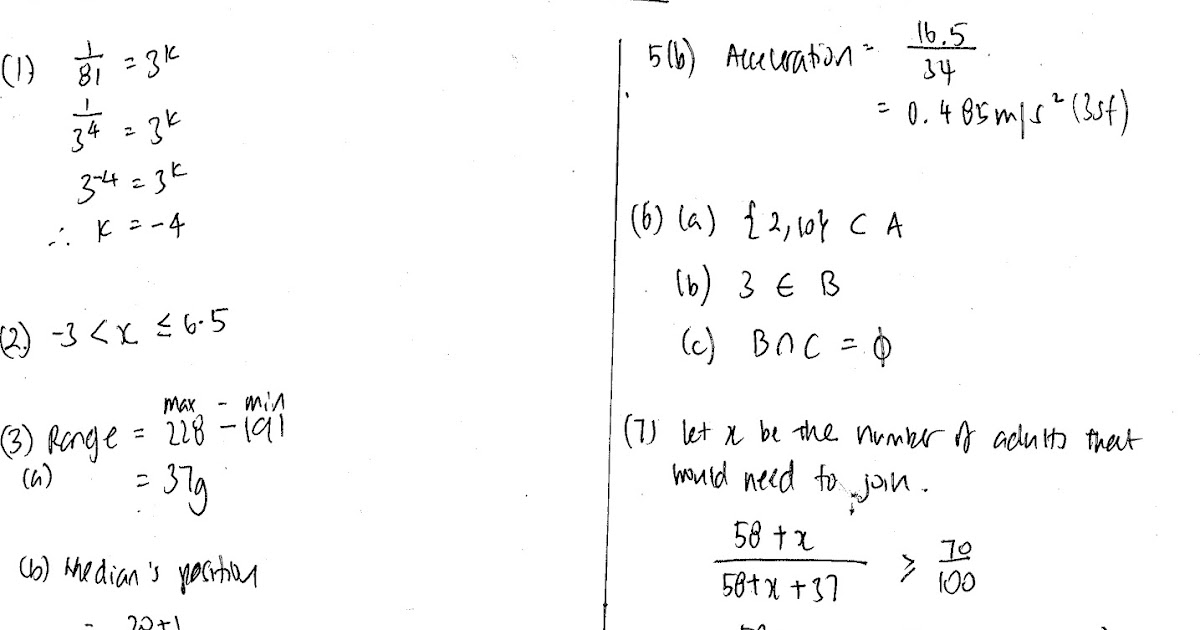 (1) 1/81 = 3^k
1/3^4 = 3^k
3^-4 = 3^k
∴ k = -4
(2) -3 < x ≤ 6.5
max - min
(3) Range = 228 - 191
(a) = 37g
(b) Median's position
= 20+1
5(b) Acceleration = 16.5/34
= 0.485 m/s² (3sf)
(6) (a) {2,10} ⊂ A
(b) 3 ∈ B
(c) B∩C = ϕ
(7) let x be the number of adults that
would need to join.
58 + x / 58 + x + 37 ≥ 70/100